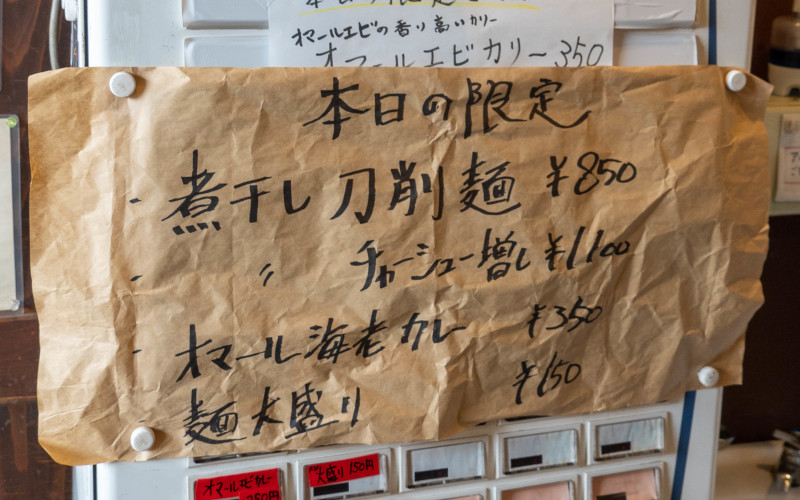 オマールエビの香り高いカリー
オマールエビカリー350
本日の限定
・煮干し刀削麺 ¥850
・〃 チャーシュー増し ¥1100
・オマール海老カレー ¥350
麺大盛り ¥150
オマールエビカレー
350円
大盛り150円